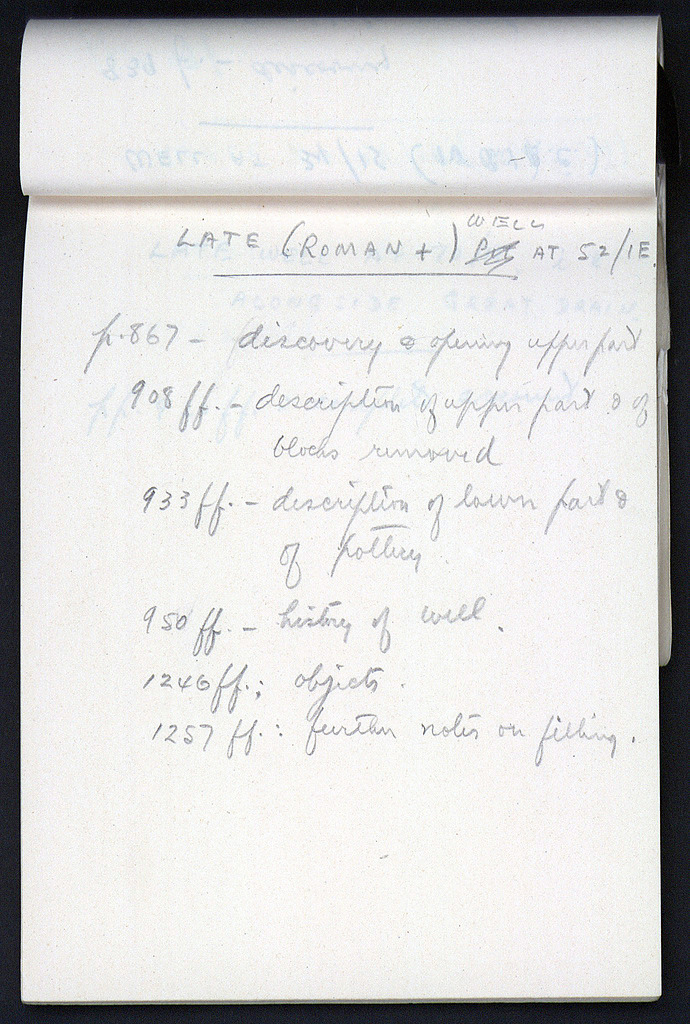 WELL
LATE (ROMAN +) AT 52/IE
p. 867 – discovery & opening upper part
908 ff. – description of upper part & of
blocks removed
933 ff. – description of lower part &
of pottery
950 ff. – history of well.
1246 ff.; objects.
1257 ff.: further notes on filling.